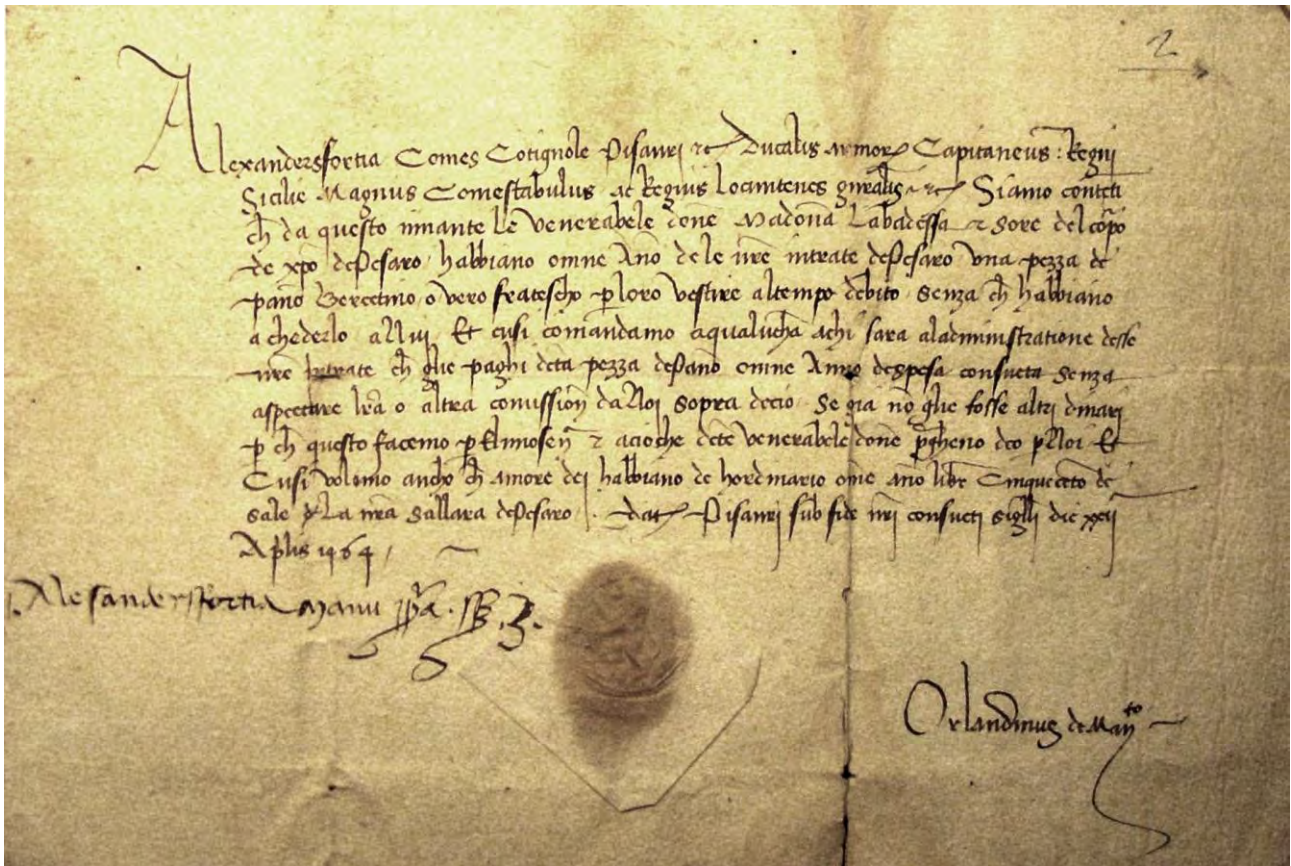 2
Alexandersfortia Comes Cotignole Pisauri etc Ducalis armorꝝ Capitaneus: Regni
Sicilie Magnus Comestabulus ac Regius locumtenēs gn̄ralis etc Siamo contēti
ch̄ da questo innante le venerabele done Madon̄a Labadessa et sore del corpo
de xp̄o de Pesaro habbiano omne Anno de le nr̄e intrate de Pesaro una pezza de
pan̄o Bercetino o vero fratescho ꝑ loro vestire al tempo debito senza ch̄ habbiano
a chederlo a Nui. Et cusi comandamo a qualuchā a chi sara al administratione desse
nr̄e intrate ch̄ glie paghi deta pezza de pan̄o omne Anno despesa consueta senza
aspectare lr̄a o altra comission̄ da Noi sopra decio. Se gia nō glie fosse altri dinari
ꝑ ch̄ questo facemo ꝑ Elimosen̄ et acioche dete venerabele done p̄gheno deo ꝑ Noi Et
Cusi volemo ancho ch̄ amore dei habbiano de hordinario om̄e an̄o libre Cinquecēto de
sale de La nr̄a Sallara de Pesaro. Dat Pisauri sub fide nr̄i consueti sigilli die xxij
Ap̄lis 1464
Alesandersfortia Manu pp̄a. ss.
Orlandinus de Man^to